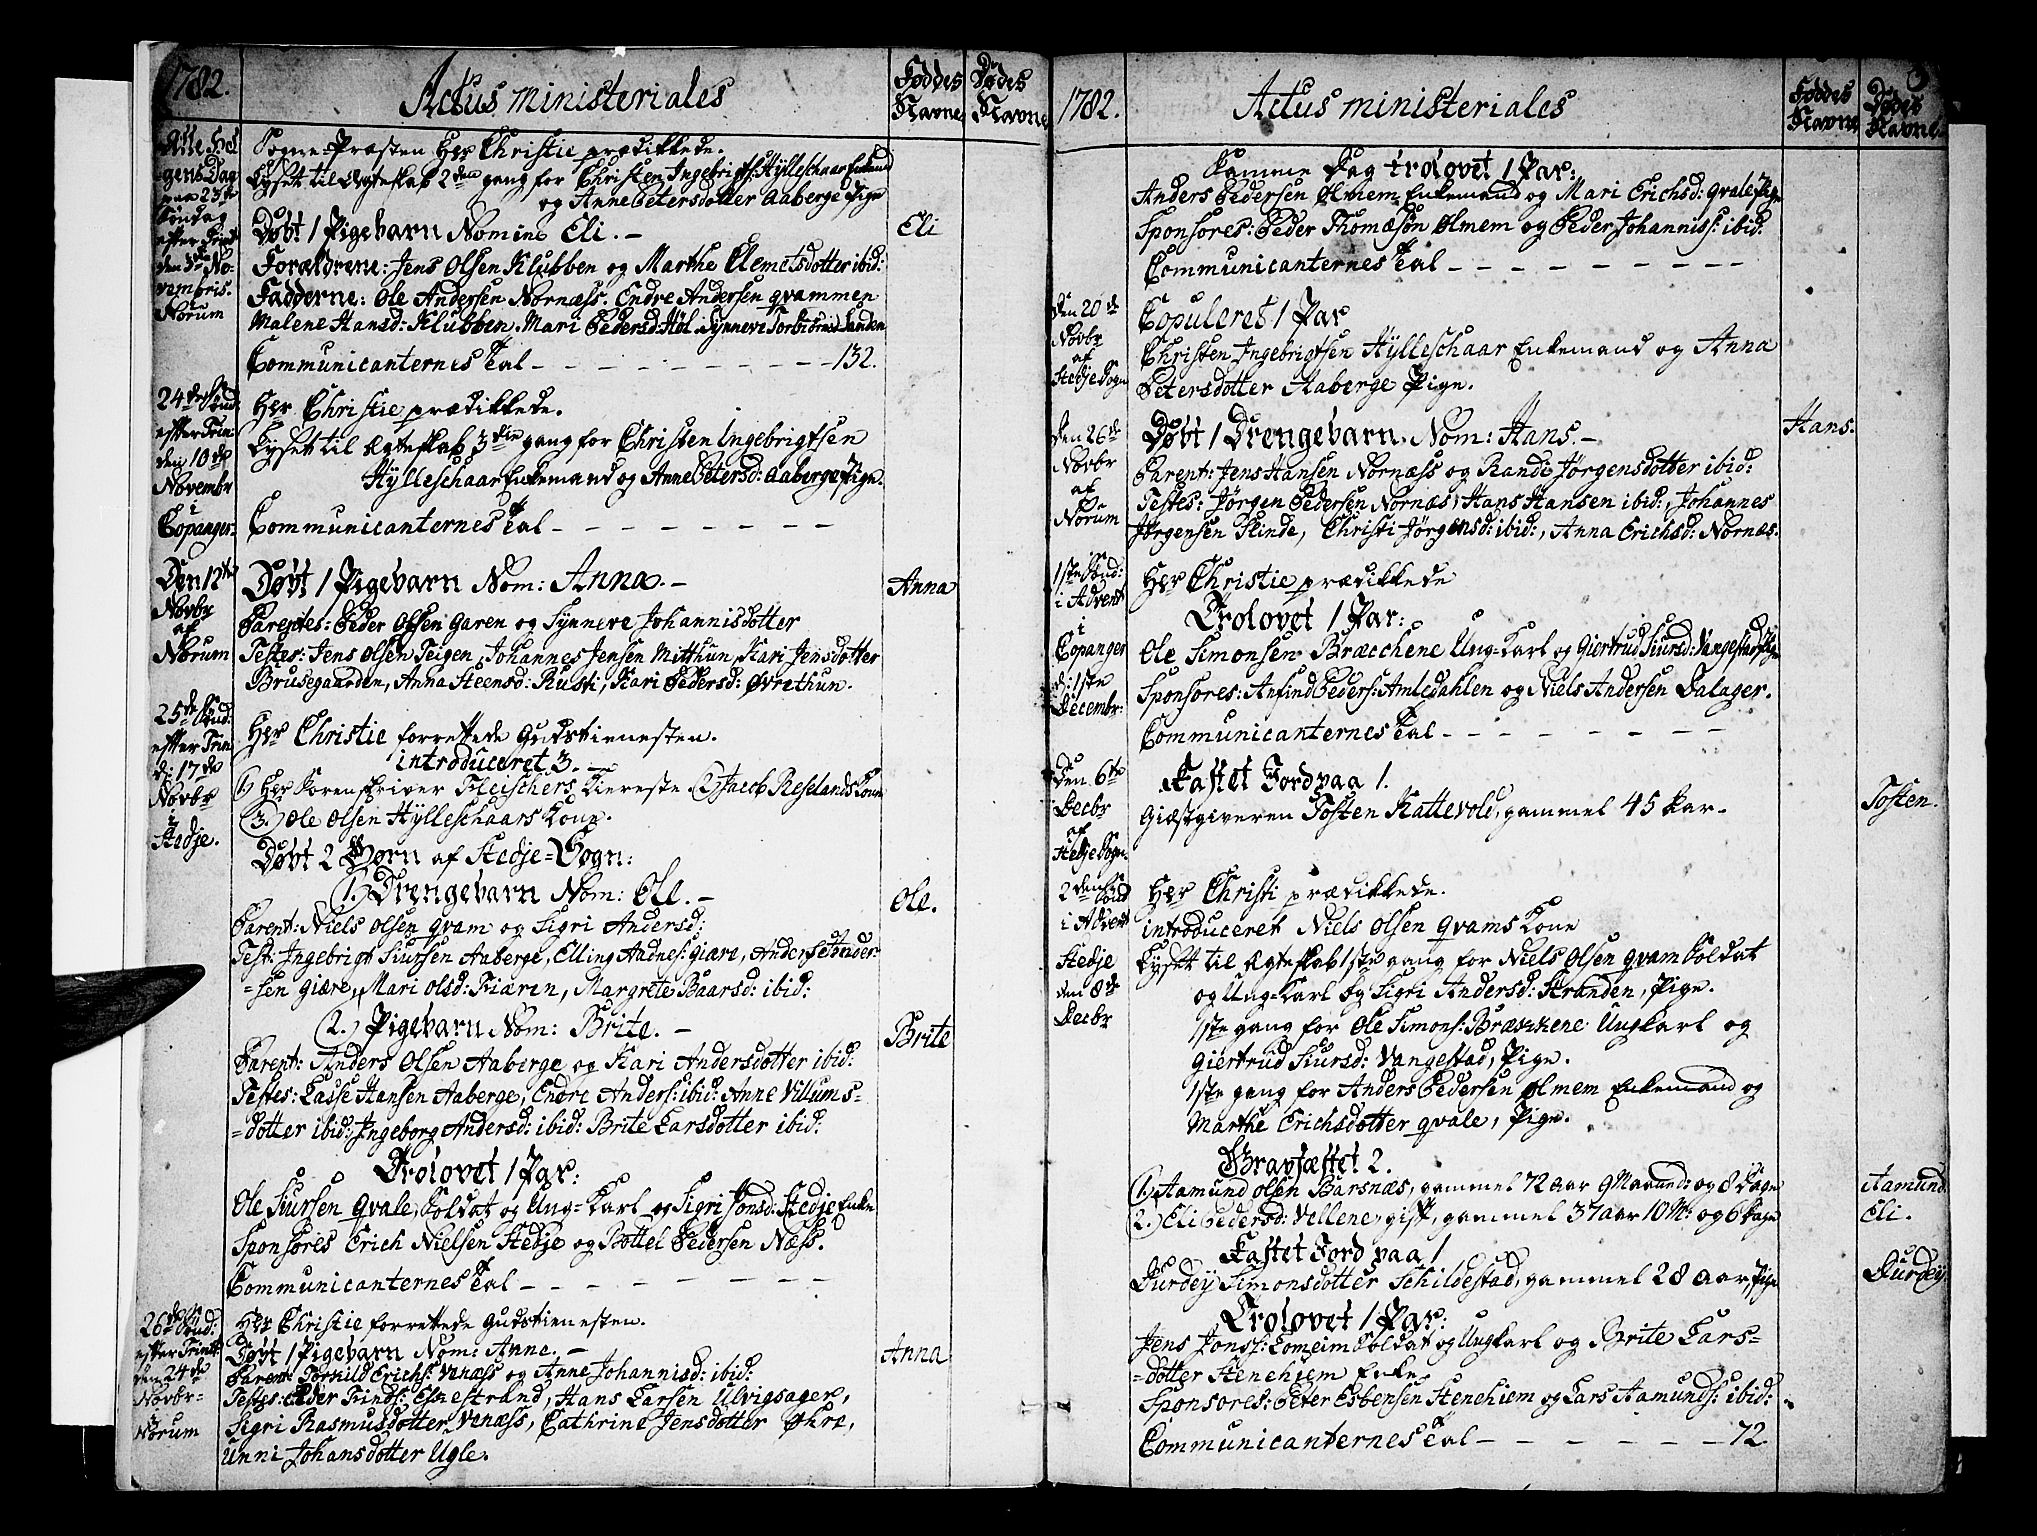 1782.
Actus ministeriales
Føddes Navne
Dødes Navne
Alle Hel
gens Dag
paa 23de
Søndag
efter Trinit
den 3de No-
vembris.
Norum
Sogne-Præsten Her Christie prædikkede.
Lyset til Ægteskab 2den gang for Christen Ingebrigts: Hÿlleschaar Enkemd
og Anne Petersdotter Aaberge Pige
Døbt 1 Pigebarn Nomine Eli. -
Eli
Forældrene: Jens Olsen Klubben og Marthe Clemetsdotter ibid:
Fadderne: Ole Andersen Nornæss. Endre Andersen qvammen
Malene Hansd: Klubben. Mari Pedersd: Høl. Synneve Torbiørnsd Sanden
Communicanternes Tal - - - - - - - - - - 132.
24de Sønd
efter Trin:
den 10de
Novembr
i
Copanger
Her Christie prædikkede.
Lyset til Ægteskab 3die gang for Christen Ingebrigtsen
Hÿlleschaar Enkemand og Anne Petersd: Aaberge Pige.
Communicanternes Tal - - - - - - - -
Den 12te
Novbr
af
Norum
Døbt 1 Pigebarn Nom: Anna. -
Anna
Parentes: Peder Olsen Garen og Synneve Johannisdotter
Testes: Jens Olsen Teigen, Johannes Jensen Mitthun, Kari Jensdotter
Brusegaarden, Anna Steensd: Rusti, Kari Pedersd: Øvrethun.
25de Sønd:
efter Trin
d: 17de
Novbr
i
Stedje.
Her Christie forrettede Gudstienesten.
introduceret 3. -
1) Her Sorenskriver Fleischers Kiereste. (2.) Jacob Reselands Kone
(3.) Ole Olsen Hÿlleschaars Kone.
Døbt 2 Børn af Stedje-Sogn:
(1.) Drengebarn Nom: Ole. -
Ole.
Parent: Niels Olsen qvam og Sigri Andersd:
Test: Ingebrigt Siursen Aaberge, Elling Aadnes: Giære, Anders Ander-
=sen giære, Mari Olsd: Fiæren, Margrete Baarsd: ibid:
(2.) Pigebarn Nom: Brite. -
Brite
Parent: Anders Olsen Aaberge og Kari Andersdotter ibid:
Testes: Lasse Hansen Aaberge, Endre Anders: ibid: Anne Villums-
=dotter ibid: Ingeborg Andersd: ibid: Brite Larsdotter ibid:
Trolovet 1 Par:
Ole Siursen qvale, Soldat og Ung-Karl og Sigri Jonsd: Stedje Enke
Sponsores Erich Nielsen Stedje og Bottel Pedersen Næss.
Communicanternes Tal - - - - - - - -
26de Sønd:
efter Trinit
den 24de
Novbr-
Norum
Her Christie forrettede Gudstienesten.
Døbt 1 Pigebarn Nom: Anne. -
Anna
Parent: Torkild Erichs: Venæss og Anne Johannisd: ibid:
Testes: Peder Trinds: Eskestrand, Hans Larsen Ulvigsager,
Sigri Rasmusdotter Venæss, Cathrine Jensdotter Øhre,
Unni Johansdotter Ugle.
1782.
Actus ministeriales
Føddes Navne
Dødes Navne
Samme Dag trolovet 1 Par:
Anders Pedersen Ølmem Enkemand og Mari Erichsd: qvale Pige
Sponsores: Peder Thomæsøn Ølmem og Peder Johanniss: ibid:
Communicanternes Tal - - - - - - - - -
den 20de
Novbr
af
Stedje Sogn
Copuleret 1 Par
Christen Ingebrigtsen Hÿlleschaar Enkemand og Anna
Petersdotter Aaberge Pige.
den 26de
Novbr
af
Norum
Døbt 1 Drengebarn. Nom: Hans. -
Hans.
Parent: Jens Hansen Nornæss og Randi Jørgensdotter ibid:
Testes: Jørgen Pedersen Nornæs, Hans Hansen ibid:, Johannes
Jørgensen Slinde, Christi Jørgensd: ibid:, Anna Erichsd: Nornæs.
1ste Sønd:
i Advent
i
Copanger
d: 1ste
Decembr:
Her Christie prædikkede
Trolovet 1 Par:
Ole Simonsen Bræcchene Ung-Karl og Giertrud Siursd: Vangestad Pige
Sponsores: Anfind Peders: Amledahlen og Niels Andersen Dalager.
Communicanternes Tal - - - - - - - -
Den 6te
Decbr
af
Stedje Sogn
Kastet Jord paa 1.
Giæstgiveren Tosten Kattevold, gammel 45 aar.
Tosten.
2den Sønd
i Advent
Stedje
den 8de
Decbr
Her Christi prædikkede.
introduceret Niels Olsen qvams Kone
Lyset til Ægteskab 1ste gang for Niels Olsen qvam Soldat
og Ung-Karl og Sigri Andersd: Stranden, Pige.
1ste gang for Ole Simons: Bræckene Ungkarl og
Giertrud Siursd: Vangestad, Pige.
1ste gang for Anders Pedersen Ølmem Enkemand og
Marthe Erichsdotter qvale, Pige.
Gravfæstet 2.
(1.) Aamund Olsen Barsnæs, gammel 72 aar 9 Maaned: og 8 Dage
Aamund
2.) Eli Pedersd: Vellene, gift, gammel 37 aar 10 M: og 6 Dage
Eli.
Kastet Jord paa 1
Durdey Simonsdotter Schildestad, gammel 28 aar, Pige
Durdey
Trolovet 1 Par:
Jens Jonss: Lomeim Soldat og Ungkarl og Brite Lars-
=dotter Stenehiem Enke
Sponsores: Peter Esbensen Stenehiem og Lars Aamunds: ibid:
Communicanternes Tal - - - - - - - 72.